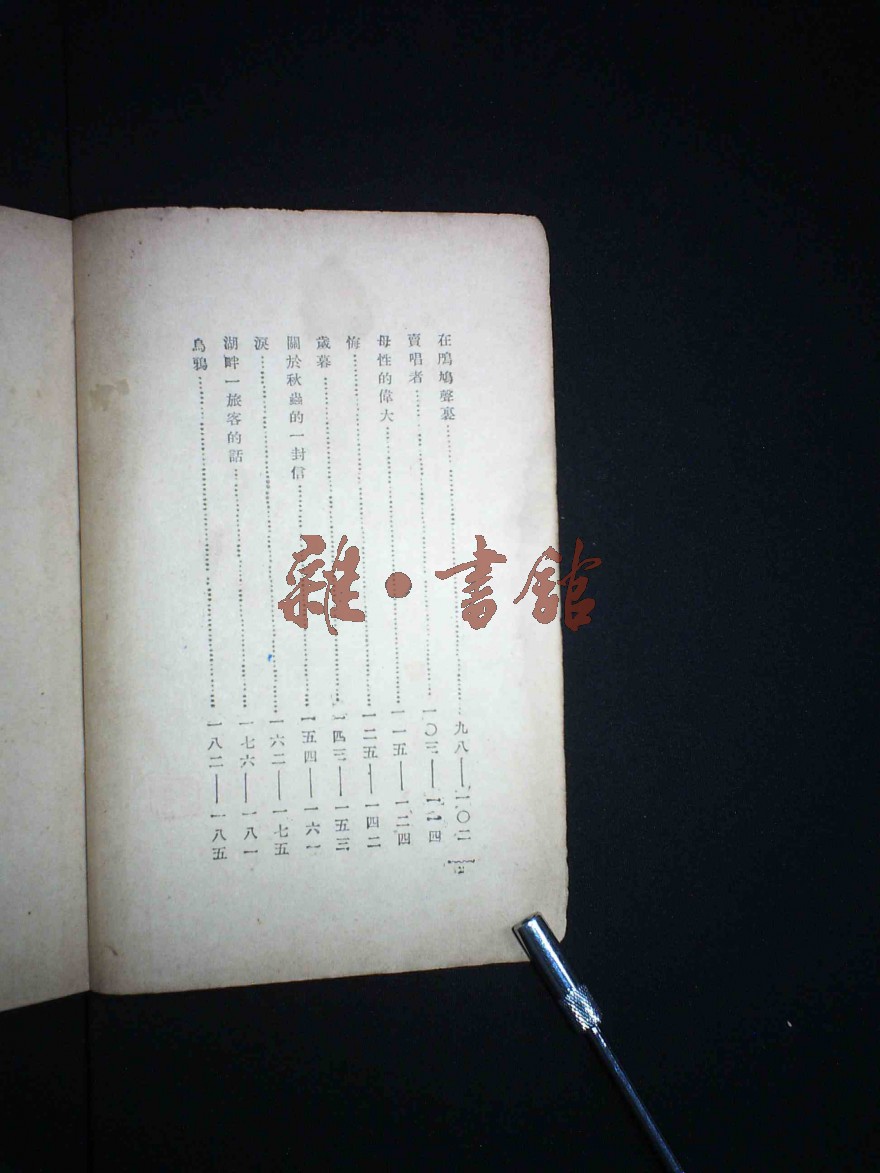 在鳲鳩聲裏……九八——一〇二
賣唱者……一〇三——一一四
母性的偉大……一一五——一二四
悔……一二五——一四二
歲暮……一四三——一五三
關於秋蟲的一封信……一五四——一六一
淚……一六二——一七五
湖畔一旅客的話……一七六——一八一
烏鴉……一八二——一八五
雜·書館